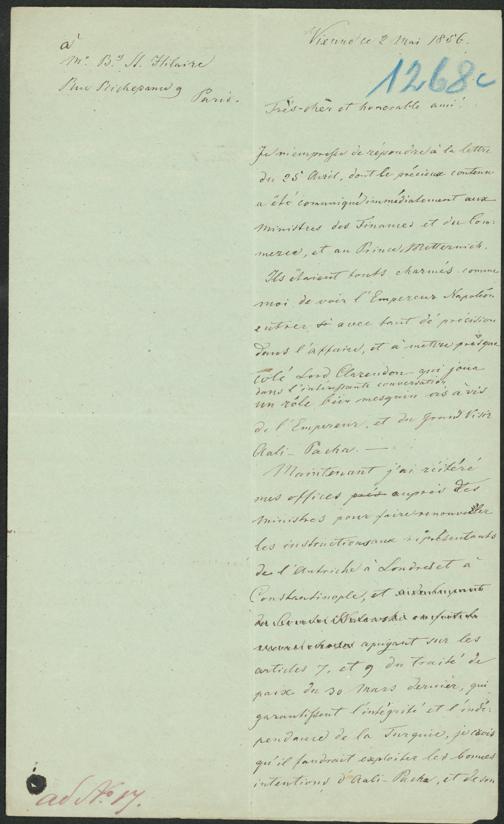 à
Mr. By. St. Hilaire
Rue Richepance 9
Paris.
Vienne ce 2 Mai 1856.
1268c
Très-chèr et honorable ami!
Je m'empresse de répondre à la lettre
du 25 Avril, dont le précieux contenu
a été communiqué immédiatement aux
Ministres des Finances et du Com-
merce, et au Prince Metternich.
Ils étaient touts charmés comme
moi de voir l'Empereur Napoléon
entrer si avec tant de précision
dans l'affaire, et à mettre presque
Lord Clarendon qui joua
dans l'intéressante conversation
un rôle bien mesquin vis à vis
de l'Empereur, et du Grand Visir
Aali-Pacha. —
Maintenant j'ai réitéré
mes offices près auprès des
Ministres pour faire renouveller
les instructions aux représentants
de l'Autriche à Londres et à
Constantinople, et
apuyant sur les
articles 7, et 9 du traité de
paix du 30 Mars dernier, qui
garantissent l'intégrité et l'indé-
pendance de la Turquie, je crois
qu'il faudrait exploiter les bonnes
intentions d'Aali-Pacha, et de son
ad No. 17.